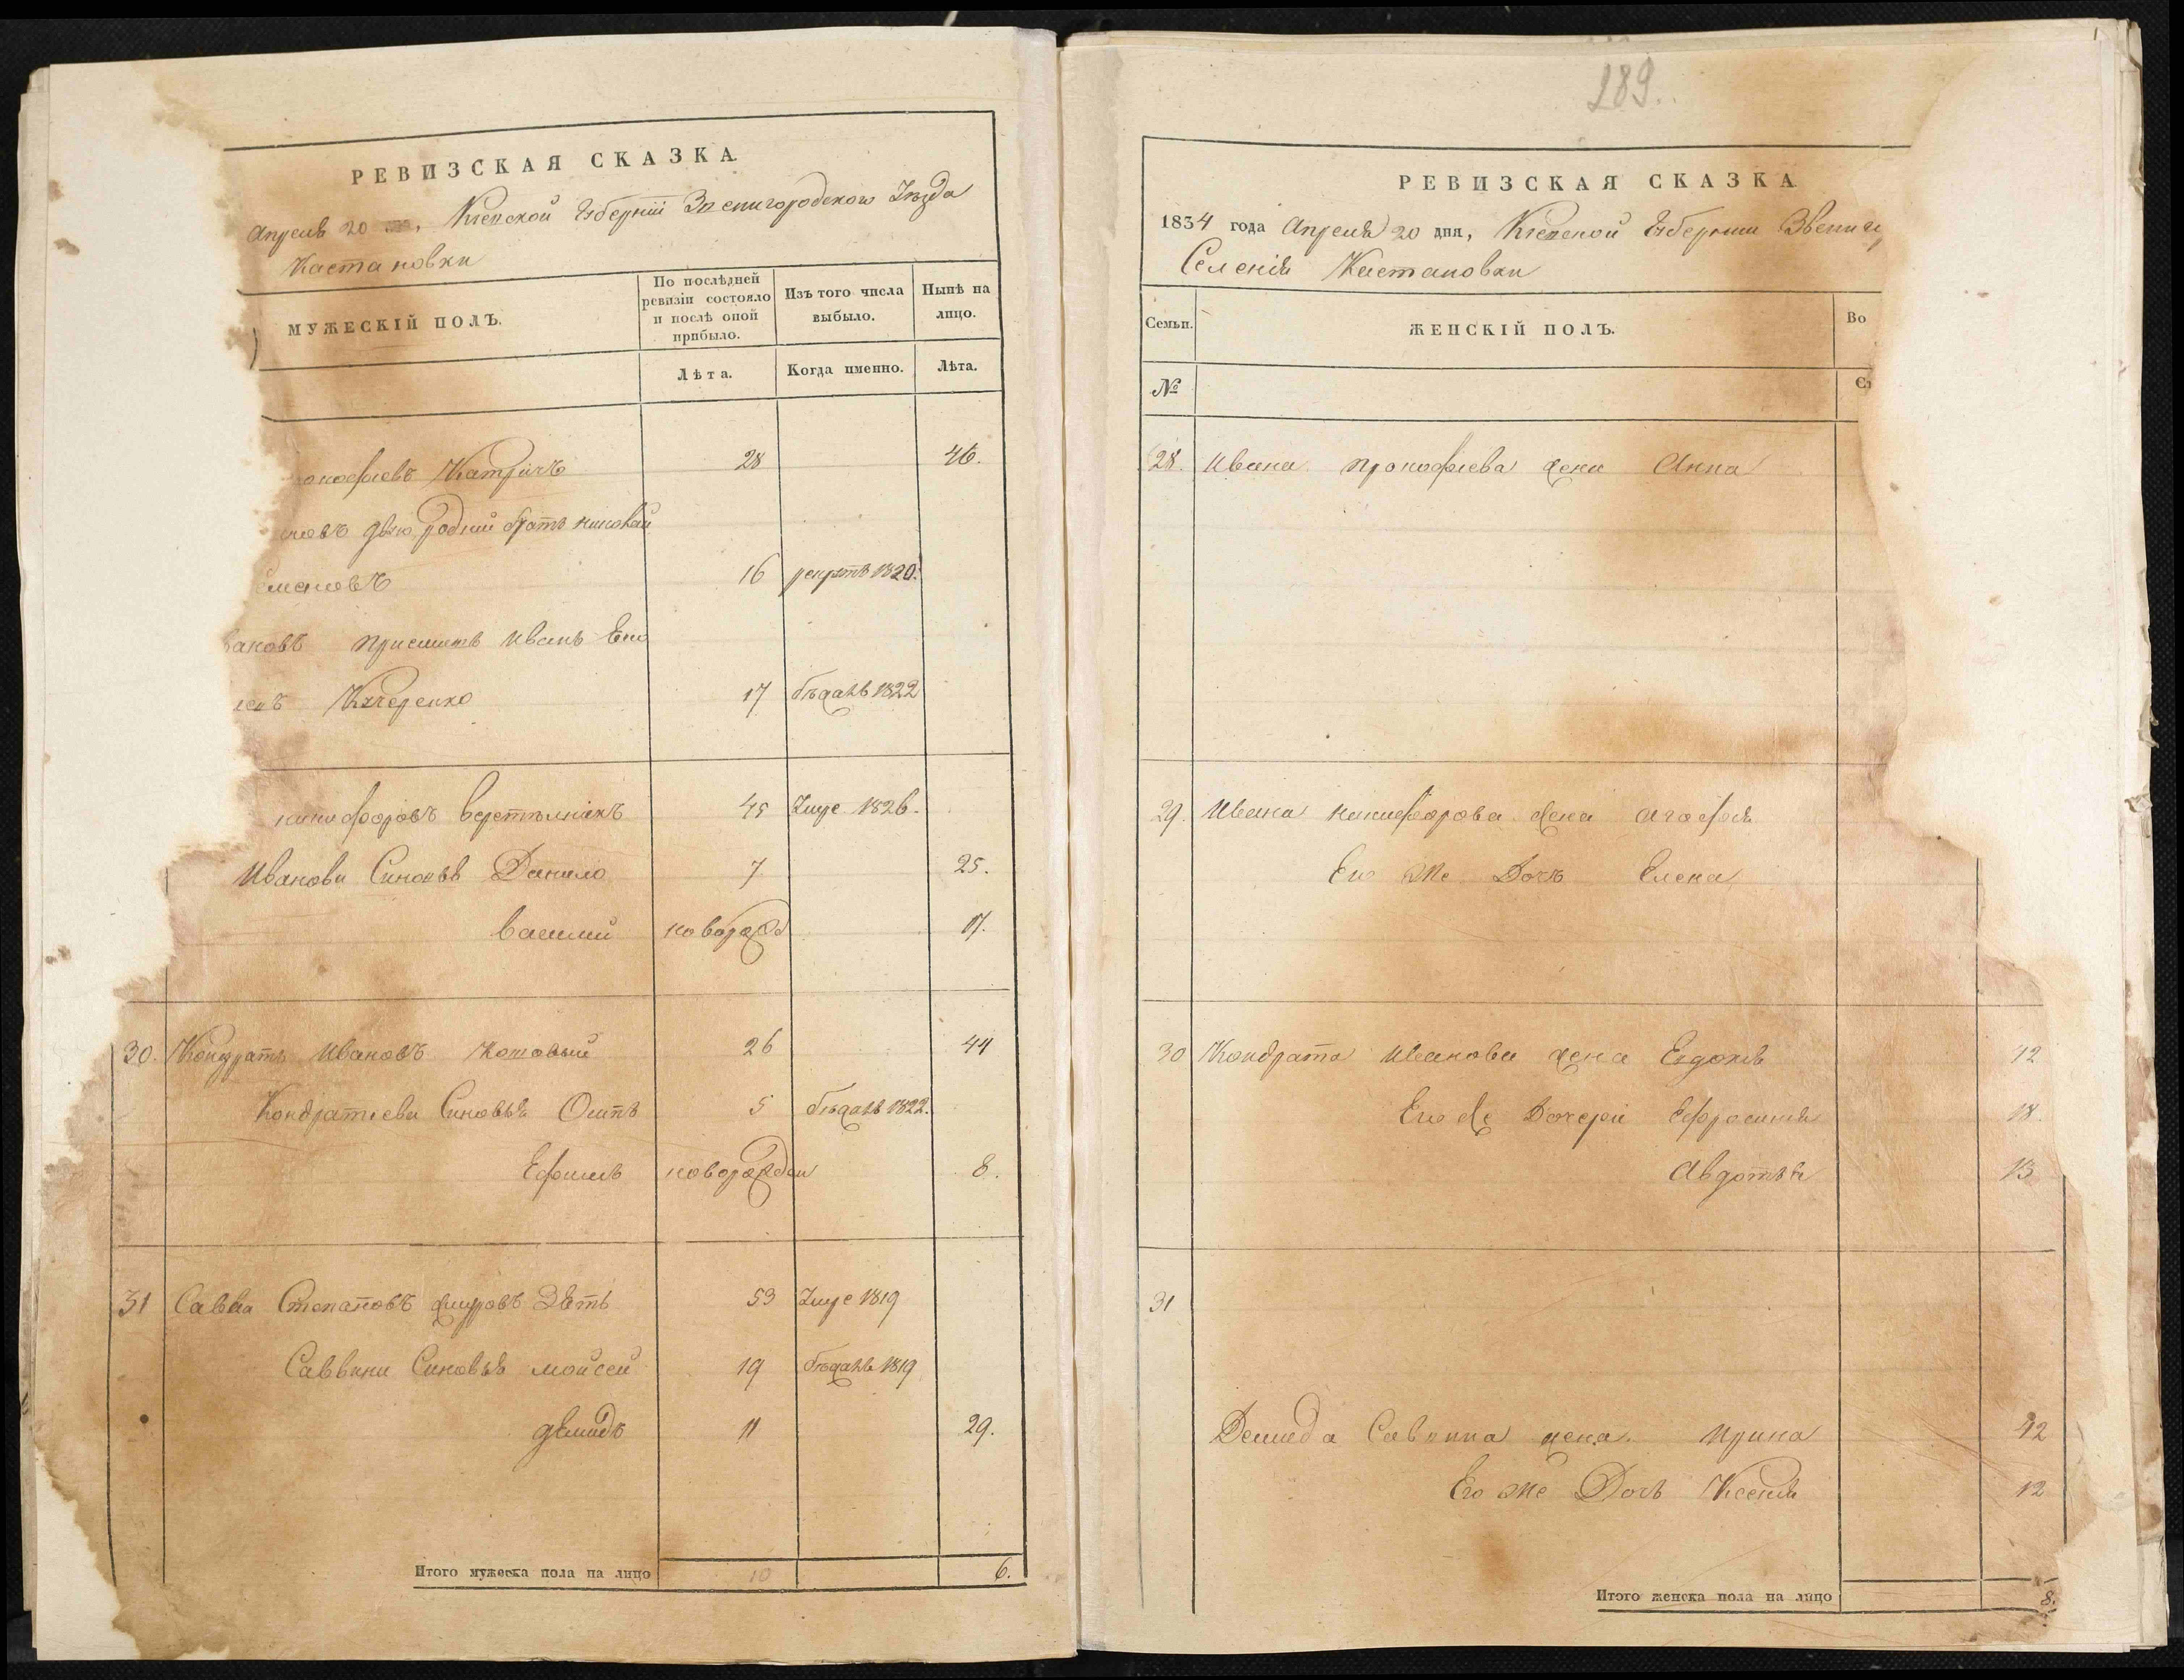 РЕВИЗСКАЯ СКАЗКА.
Апреля 20 Кіевской Губерніи Звенигородского Уезда
Кастановки
МУЖЕСКІЙ ПОЛЪ.
По послѣдней ревизіи состояло и послѣ оной прибыло.
Изъ того числа выбыло.
Нынѣ на лицо.
Лѣта.
Когда именно.
Лѣта.
окофиевъ Катричъ 28 46.
новъ двою родный братъ николай
емановъ 16 рекрутъ 1820.
вановъ приемышъ иванъ
Кучеренко 17 бежалъ 1822
никифоровъ 45 Умре 1826.
Иванови Синовья Данило 7 25.
василий новорожд 17.
30. Кондратъ ивановъ Котовый 26 44
Кондратиеви Синовья Осипъ 5 бежалъ 1822.
Ефимъ новорожден 8.
31 Савва Степановъ Зять 53 Умре 1819
Саввини Синовья мойсей 19 бежалъ 1819
демидъ 11 29.
Итого мужеска пола на лицо 10 6.
189.
РЕВИЗСКАЯ СКАЗКА
1834 года Апреля 20 дня, Кіевской Губернии Звениг
Селенія Кастановки
Семьи.
ЖЕНСКІЙ ПОЛЪ.
Во
№
28. Ивана прокофиева жена Анна
29. Ивана никифорова жена агафия
Его же Дочь Елена
30 Кондрата иванова жена Евдокия 42
Его же Дочери Ефросиния 18.
Авдотья 13
31
Демида Саввина жена Ирина 42
Его же Дочь Ксения 12
Итого женска пола на лицо 8.